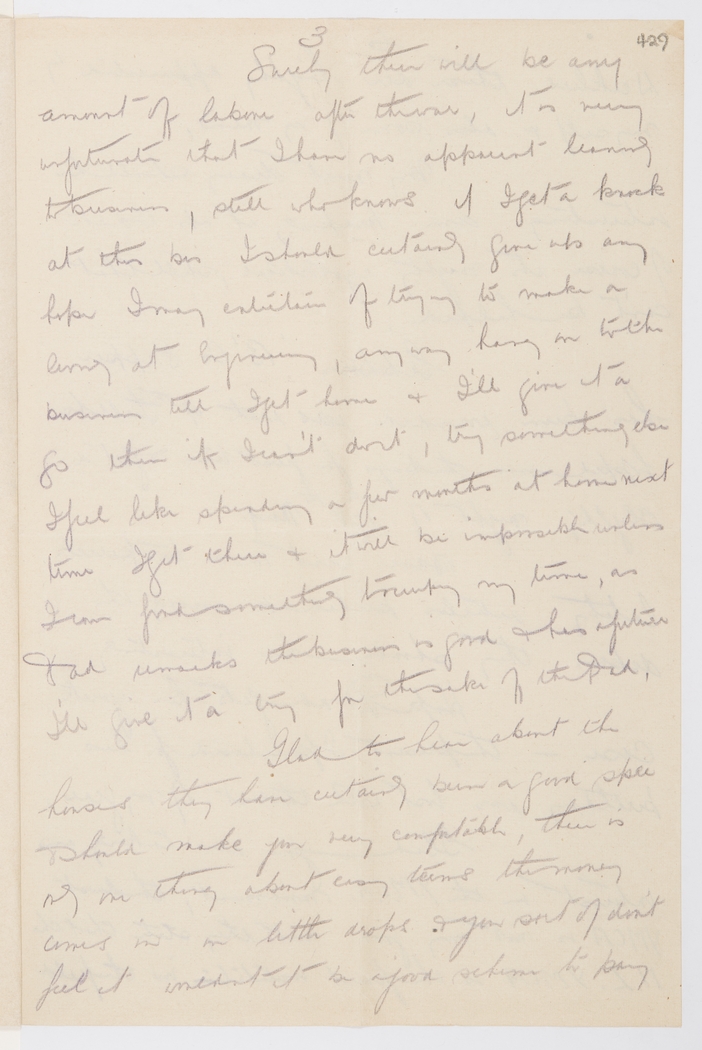 3
429
Surely there will be any
amount of labour after the war, it is very
unfortunate that I have no apparent leaning
to business, still who knows if I get a knock
at this biz I should certainly give up any
hope I may entertain of trying to make a
living at Engineering, anyway hang on to the
business till I get home & I'll give it a
go then if I can't do it, try something else
I feel like spending a few months at home next
time I get there & it will be impossible unless
I can find something to occupy my time, as
Dad remarks the business is good & has a future
I'll give it a try for the sake of the Dad.
Glad to hear about the
houses they have certainly been a good spec
& should make you very comfortable, there is
only one thing about easy terms the money
comes in in little drops & you sort of don't
feel it wouldn't it be a good scheme to pay